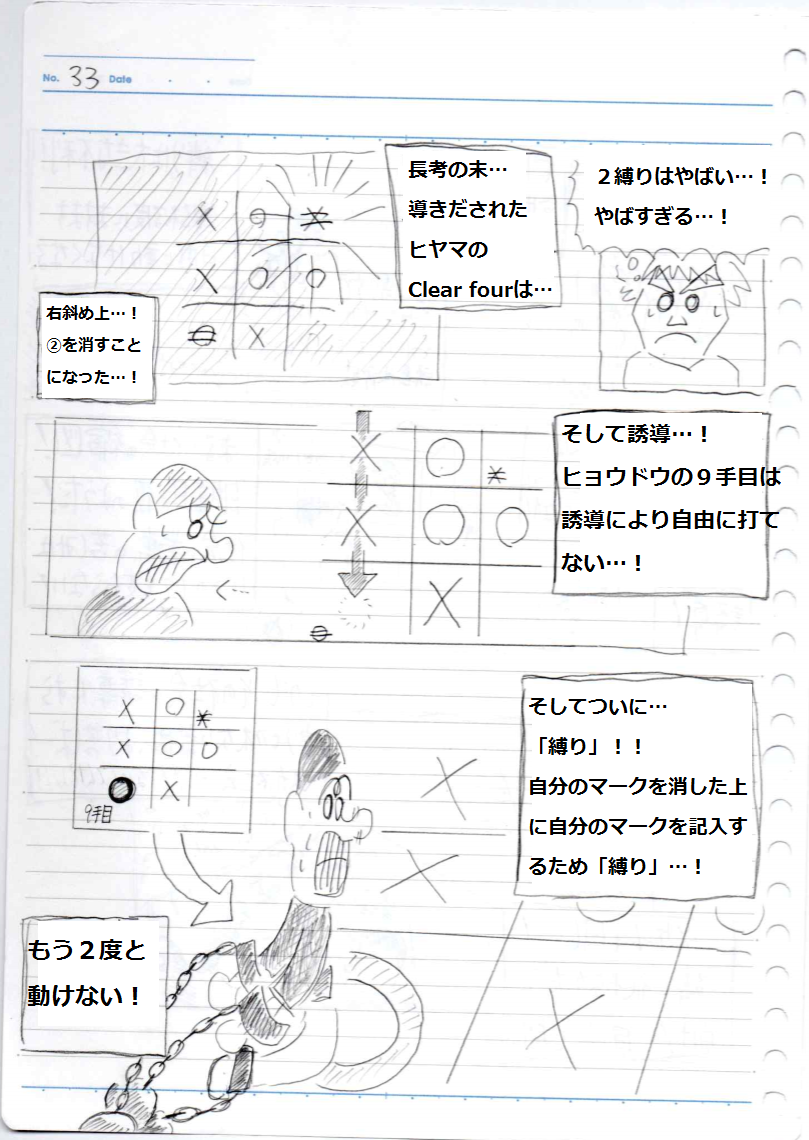 No. 33 Date
長考の末…
導きだされた
ヒヤマの
Clear fourは…
２縛りはやばい…！
やばすぎる…！
右斜め上…！
②を消すこと
になった…！
そして誘導…！
ヒョウドウの９手目は
誘導により自由に打て
ない…！
9手目
そしてついに…
「縛り」！！
自分のマークを消した上
に自分のマークを記入す
るため「縛り」…！
もう２度と
動けない！